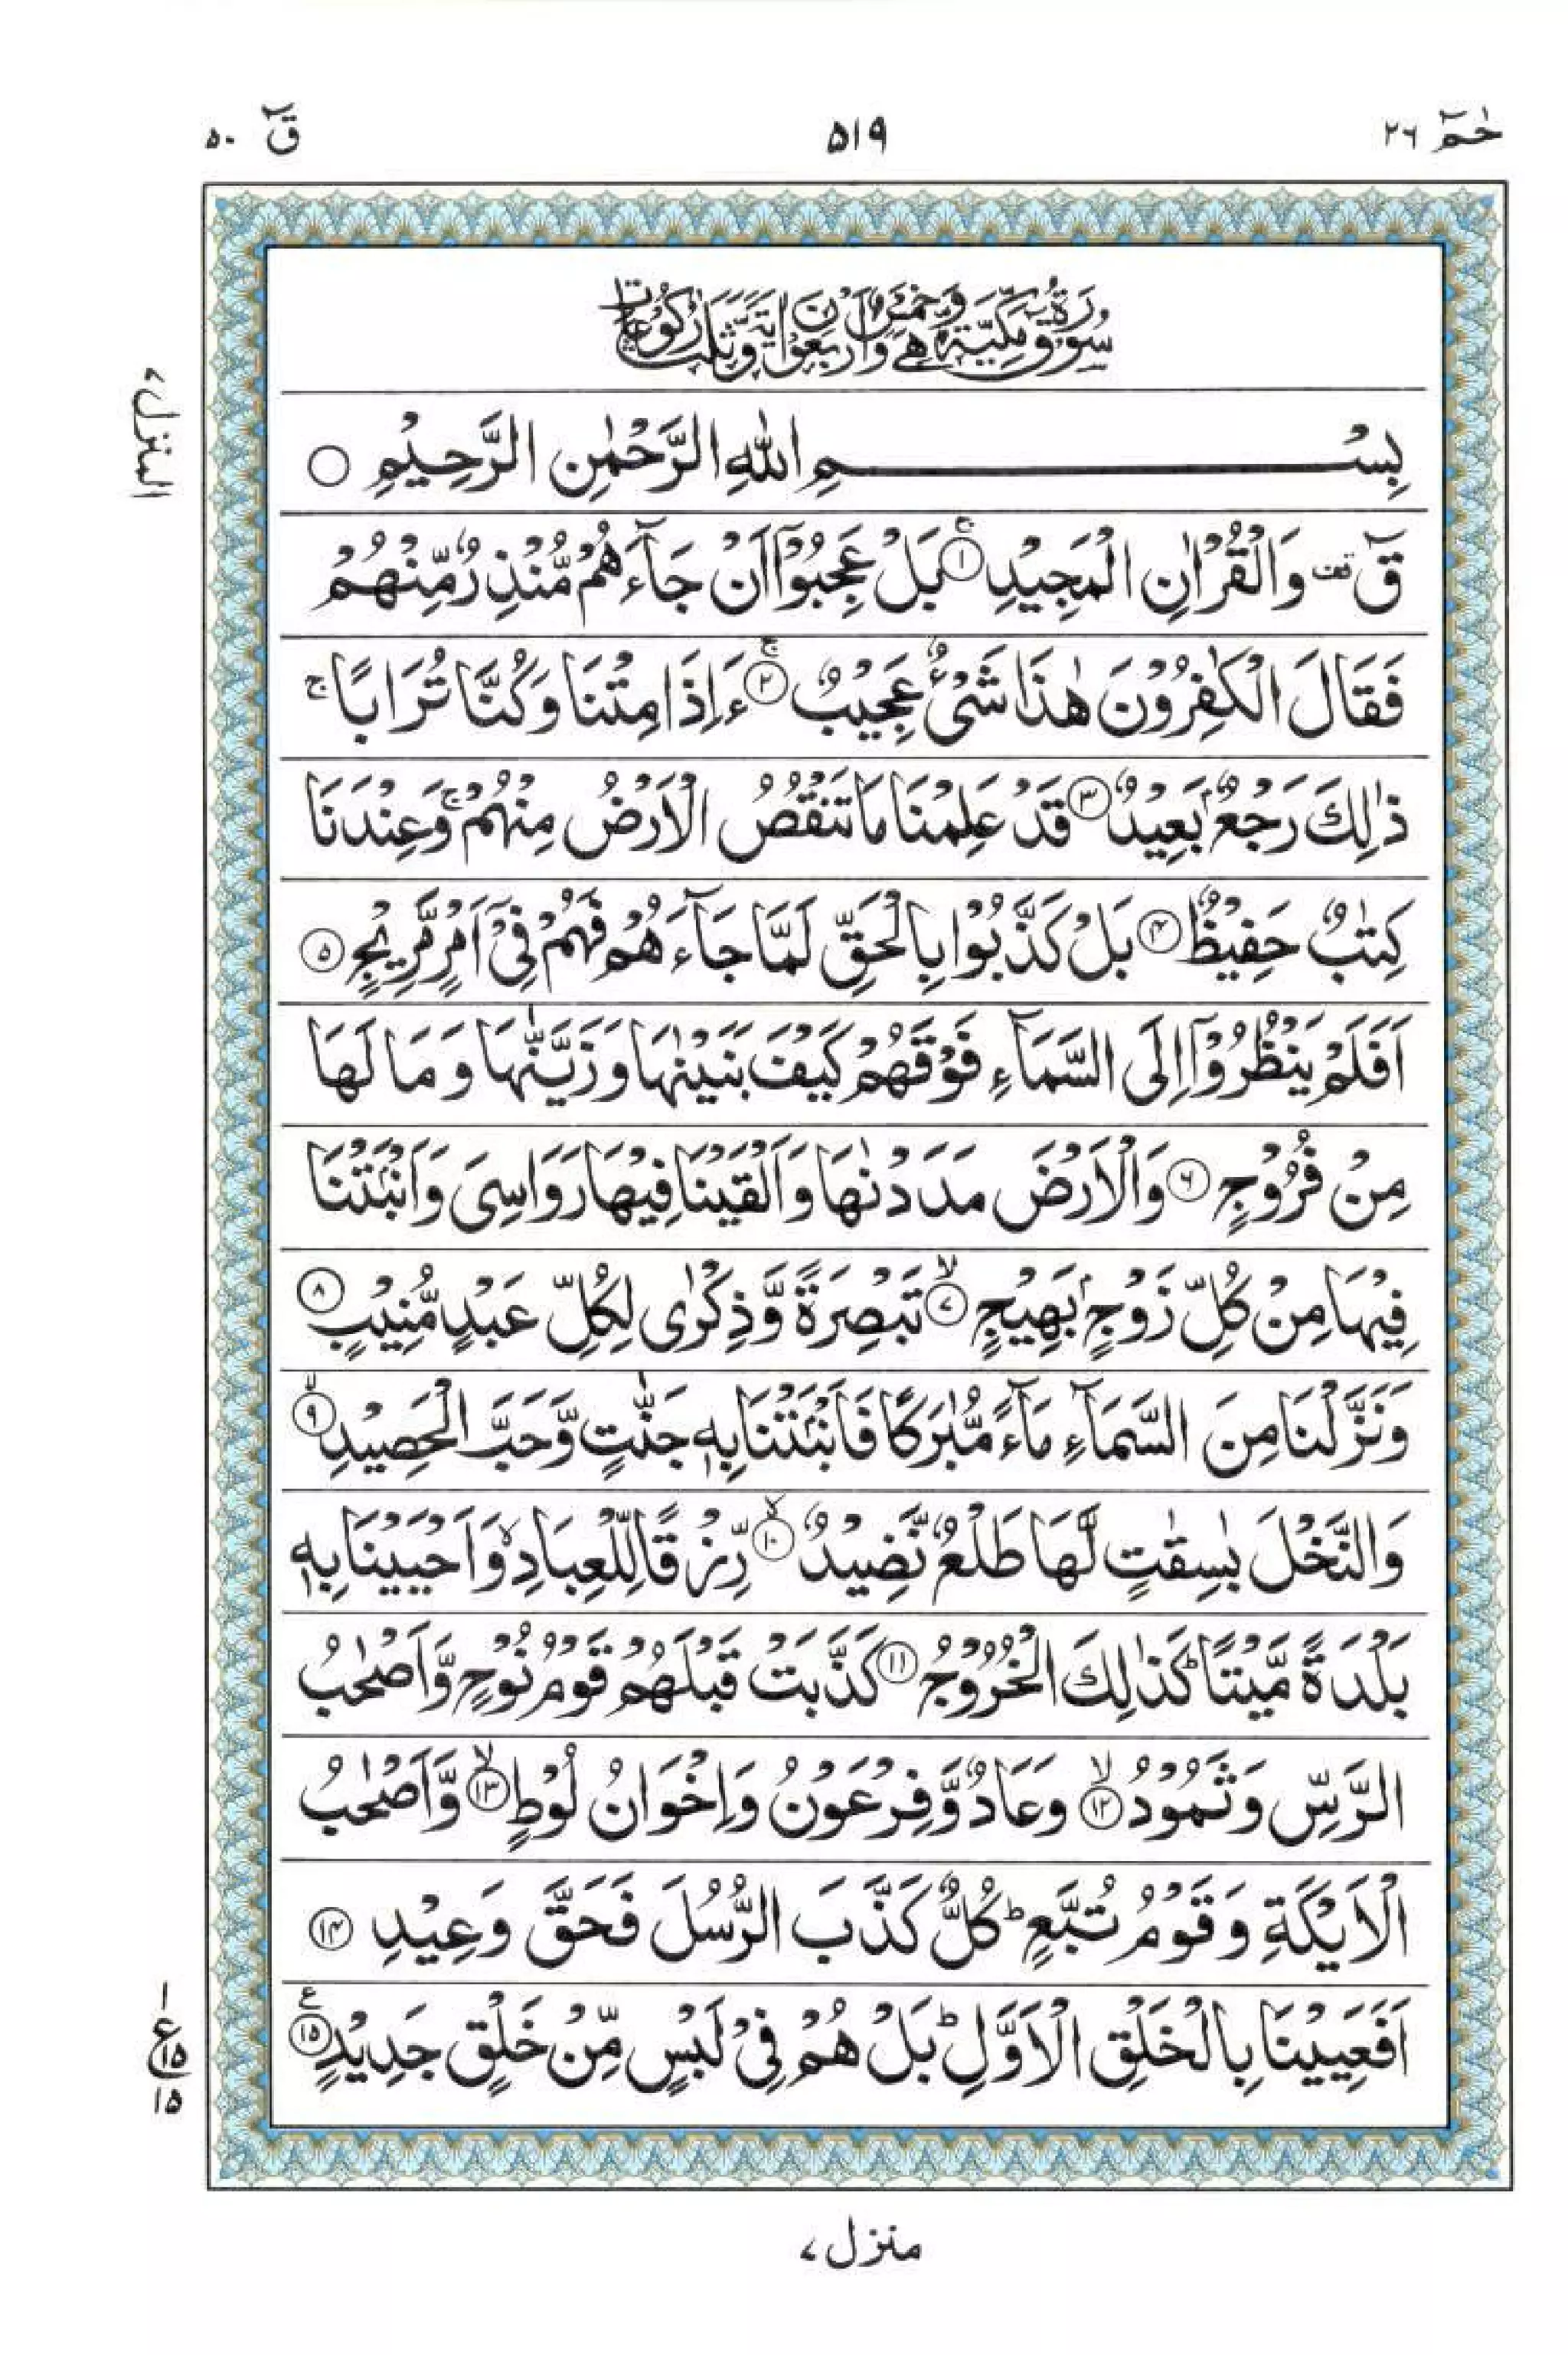 حٰمٓ ٢٦
٥١٩
قٓ ٥٠
سُوْرَةُ قٓ مَكِّيَّةٌ وَّهِيَ خَمْسٌ وَّاَرْبَعُوْنَ اٰيَةً وَّثَلٰثُ رُكُوْعَاتٍ
المنزل ٧
بِسْمِ اللّٰهِ الرَّحْمٰنِ الرَّحِيْمِ ○
قٓ ۟ وَالْقُرْاٰنِ الْمَجِيْدِ ۚ﴿۱﴾ بَلْ عَجِبُوْۤا اَنْ جَآءَهُمْ مُّنْذِرٌ مِّنْهُمْ
فَقَالَ الْكٰفِرُوْنَ هٰذَا شَیْءٌ عَجِيْبٌ ۚ﴿۲﴾ ءَاِذَا مِتْنَا وَكُنَّا تُرَابًا ۚ
ذٰلِكَ رَجْعٌۢ بَعِيْدٌ ﴿۳﴾ قَدْ عَلِمْنَا مَا تَنْقُصُ الْاَرْضُ مِنْهُمْ ۚ وَعِنْدَنَا
كِتٰبٌ حَفِيْظٌ ﴿۴﴾ بَلْ كَذَّبُوْا بِالْحَقِّ لَمَّا جَآءَهُمْ فَهُمْ فِیْۤ اَمْرٍ مَّرِيْجٍ ﴿۵﴾
اَفَلَمْ يَنْظُرُوْۤا اِلَی السَّمَآءِ فَوْقَهُمْ كَيْفَ بَنَيْنٰهَا وَزَيَّنّٰهَا وَمَا لَهَا
مِنْ فُرُوْجٍ ﴿۶﴾ وَالْاَرْضَ مَدَدْنٰهَا وَاَلْقَيْنَا فِيْهَا رَوَاسِیَ وَاَنْۢبَتْنَا
فِيْهَا مِنْ كُلِّ زَوْجٍۭ بَهِيْجٍ ۙ﴿۷﴾ تَبْصِرَةً وَّذِكْرٰی لِكُلِّ عَبْدٍ مُّنِيْبٍ ﴿۸﴾
وَنَزَّلْنَا مِنَ السَّمَآءِ مَآءً مُّبٰرَكًا فَاَنْۢبَتْنَا بِهٖ جَنّٰتٍ وَّحَبَّ الْحَصِيْدِ ۙ﴿۹﴾
وَالنَّخْلَ بٰسِقٰتٍ لَّهَا طَلْعٌ نَّضِيْدٌ ۙ﴿۱۰﴾ رِّزْقًا لِّلْعِبَادِ ۙ وَاَحْيَيْنَا بِهٖ
بَلْدَةً مَّيْتًا ؕ كَذٰلِكَ الْخُرُوْجُ ﴿۱۱﴾ كَذَّبَتْ قَبْلَهُمْ قَوْمُ نُوْحٍ وَّاَصْحٰبُ
الرَّسِّ وَثَمُوْدُ ۙ﴿۱۲﴾ وَعَادٌ وَّفِرْعَوْنُ وَاِخْوَانُ لُوْطٍ ۙ﴿۱۳﴾ وَّاَصْحٰبُ
الْاَيْكَةِ وَقَوْمُ تُبَّعٍ ؕ كُلٌّ كَذَّبَ الرُّسُلَ فَحَقَّ وَعِيْدِ ﴿۱۴﴾
اَفَعَيِيْنَا بِالْخَلْقِ الْاَوَّلِ ؕ بَلْ هُمْ فِیْ لَبْسٍ مِّنْ خَلْقٍ جَدِيْدٍ ﴿۱۵﴾ ع
١
ع ١٥
١٥
منزل ٧